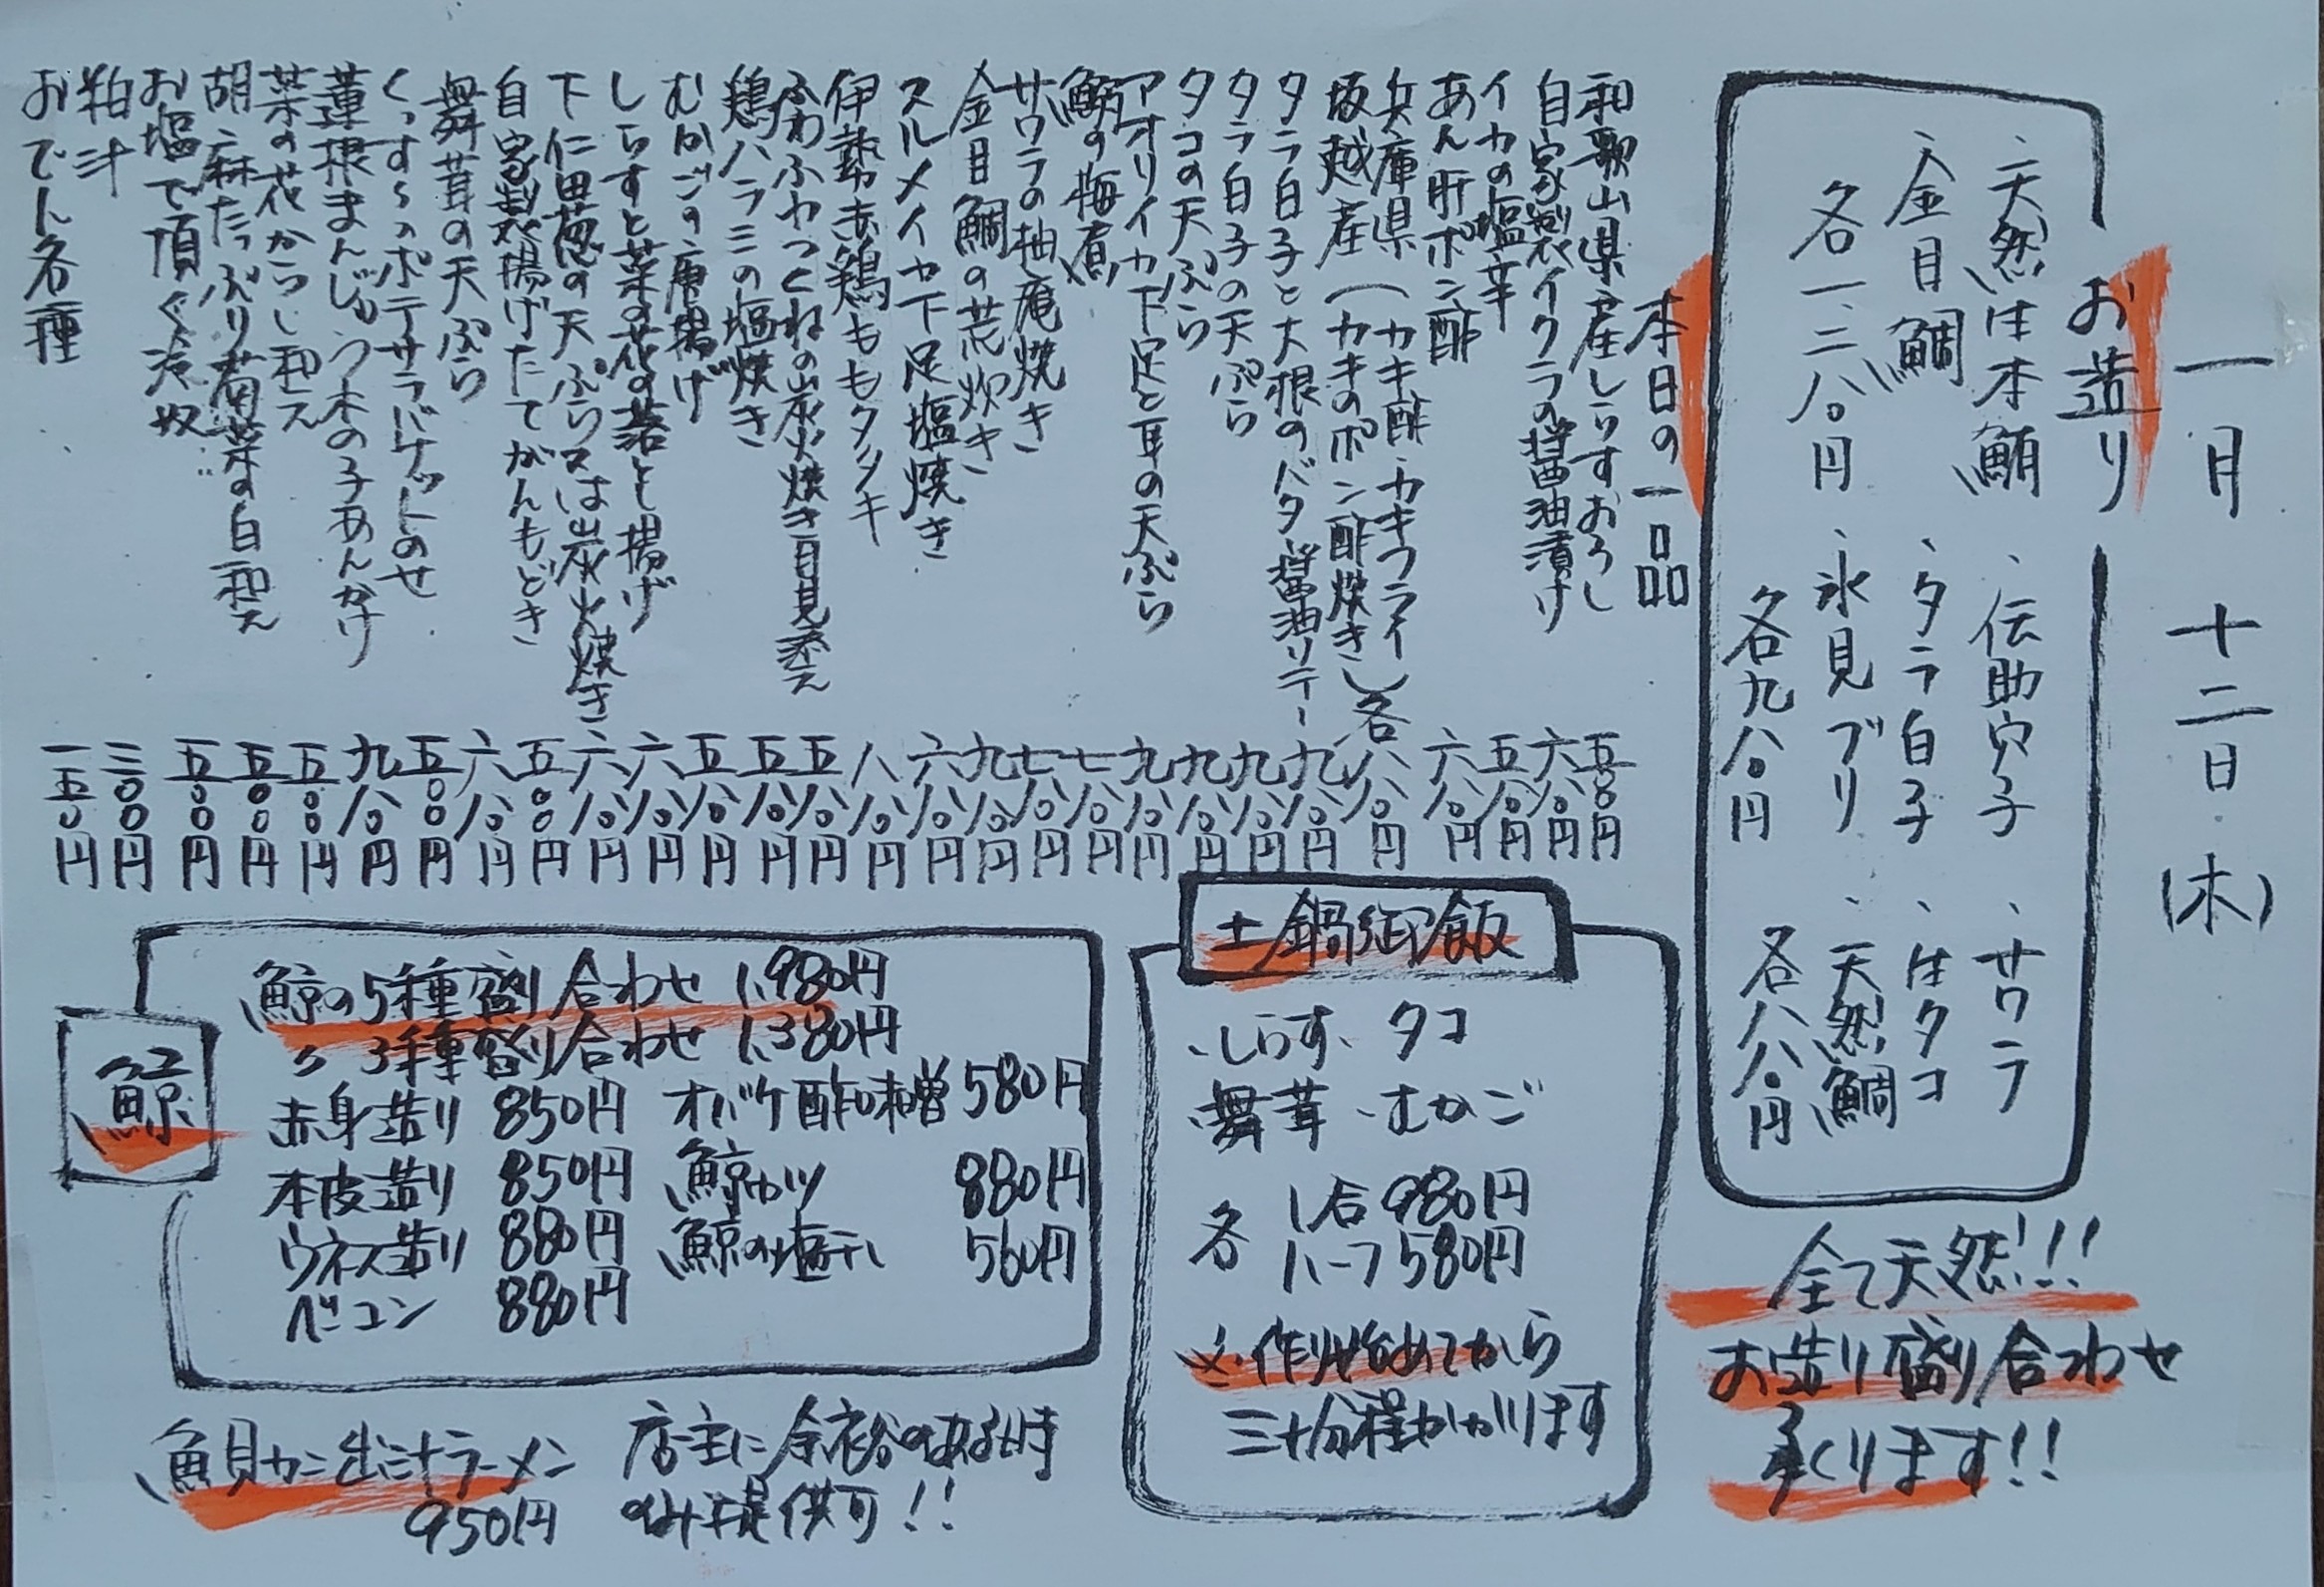 一月十二日(木)
お造り
、天然生本鮪
、金目鯛
各一、二八〇円
、伝助穴子
、タラ白子
、氷見ブリ
各九八〇円
、サワラ
、生タコ
、天然鯛
各八八〇円
全て天然!!!
お造り盛り合わせ
承ります!!
本日の一品
和歌山県産しらすおろし 五八〇円
自家製イクラの醤油漬け 六八〇円
イカの塩辛 五八〇円
あん肝ポン酢 六八〇円
兵庫県坂越産(カキ酢・カキフライ カキのポン酢焼き)各 八八〇円
タラ白子と大根のバター醤油ソテー 九八〇円
タラ白子の天ぷら 九八〇円
タコの天ぷら 九八〇円
アオリイカ下足と耳の天ぷら 九八〇円
鰯の梅煮 七八〇円
サワラの柚庵焼き 七八〇円
金目鯛の荒炊き 九八〇円
スルメイカ下足塩焼き 六八〇円
伊勢赤鶏ももタタキ 八八〇円
ふわふわつくねの炭火焼き 目見添え 五八〇円
鶏ハラミの塩焼き 五八〇円
むかごの唐揚げ 五八〇円
しらすと菜の花の落とし揚げ 六八〇円
下仁田葱の天ぷら又は炭火焼き 六八〇円
自家製揚げたてがんもどき 五〇〇円
舞茸の天ぷら 六八〇円
くっすんポテサラバケットのせ 五〇〇円
蓮根まんじゅう木の子あんかけ 九八〇円
菜の花からし和え 五〇〇円
胡麻たっぷり菊菜の白和え 五〇〇円
お塩で頂く冷奴 五〇〇円
粕汁 三〇〇円
おでん各種 一五〇円
土鍋御飯
・しらす・タコ
・舞茸・むかご
各 1合 980円
ハーフ 580円
※作り始めてから
三十分程かかります
鯨
鯨の5種盛り合わせ 1,980円
〃 3種盛り合わせ 1,380円
赤身造り 850円 オバケ酢味噌 580円
本皮造り 850円 鯨カツ 880円
ウネス造り 880円 鯨の塩干し 560円
ベーコン 880円
魚貝カニ出汁ラーメン
950円
店主に余裕のある時
のみ提供可!!